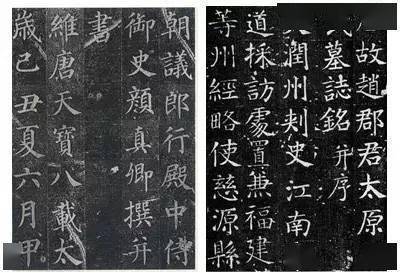 故趙郡君太原
氏墓誌銘并序
潤州刾史江南
道採訪處置兼福建
等州經略使慈源縣
朝議郎行殿中侍
御史顏真卿撰并
書
維唐天寶八載太
歲己丑夏六月甲